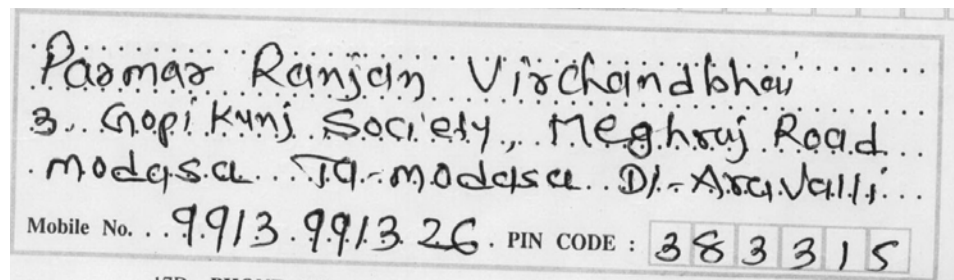 Parmar Ranjan Virchandbhai
3. Gopi Kunj Society, Meghraj Road
modasa Ta.-modasa Di.-Aravalli
Mobile No. 9913991326. PIN CODE : 383315